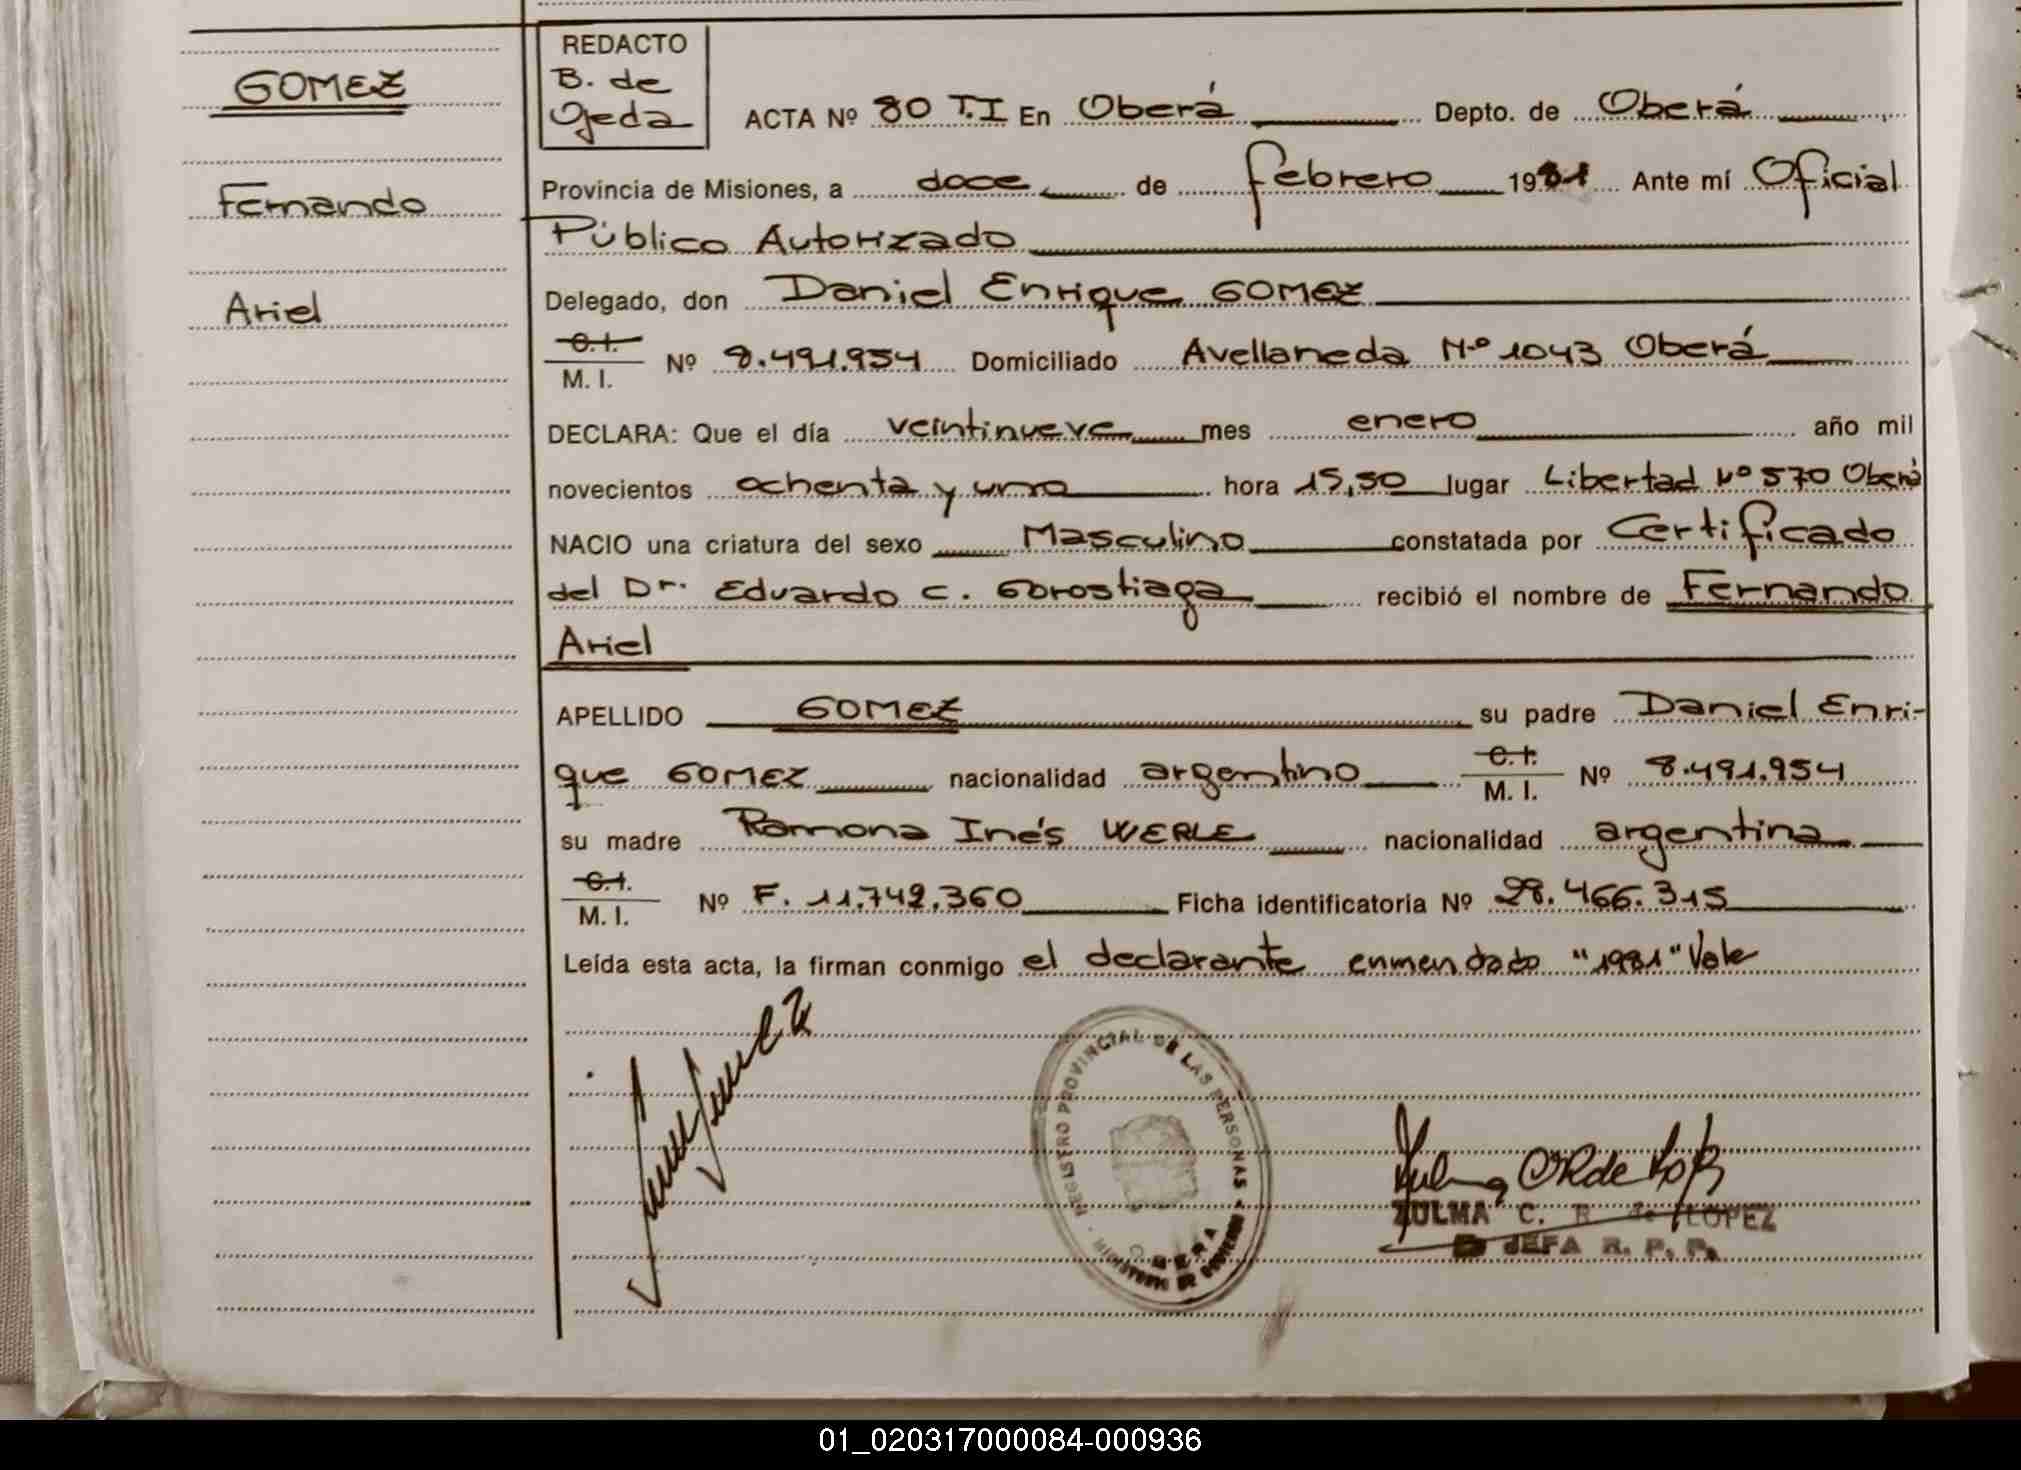 GOMEZ
Fernando
Ariel
REDACTO
B. de
Ojeda
ACTA Nº 80 T.I En Oberá Depto. de Oberá
Provincia de Misiones, a doce de febrero 1981 Ante mí Oficial
Público Autorizado
Delegado, don Daniel Enrique GOMEZ
C.I.
M. I. Nº 8.491.954 Domiciliado Avellaneda Nº 1043 Oberá
DECLARA: Que el día veintinueve mes enero año mil
novecientos ochenta y uno hora 15,50 lugar Libertad Nº 570 Oberá
NACIO una criatura del sexo Masculino constatada por Certificado
del Dr. Eduardo C. Gorostiaga recibió el nombre de Fernando
Ariel
APELLIDO GOMEZ su padre Daniel Enri-
que GOMEZ nacionalidad argentino C.I. M. I. Nº 8.491.954
su madre Ramona Inés WERLE nacionalidad argentina
C.I.
M. I. Nº F. 11.742.360 Ficha identificatoria Nº 28.466.315
Leída esta acta, la firman conmigo el declarante enmendado "1981" Vale
REGISTRO PROVINCIAL DE LAS PERSONAS
OBERA
ZULMA C. R. de LOPEZ
JEFA R. P. P.
01_020317000084-000936